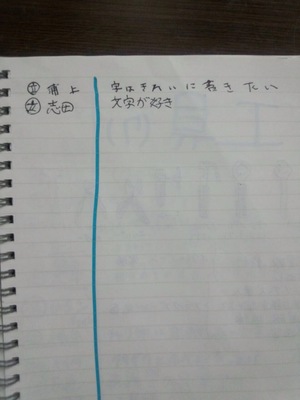 浦上 字はきれいに書きたい
志田 文字が好き